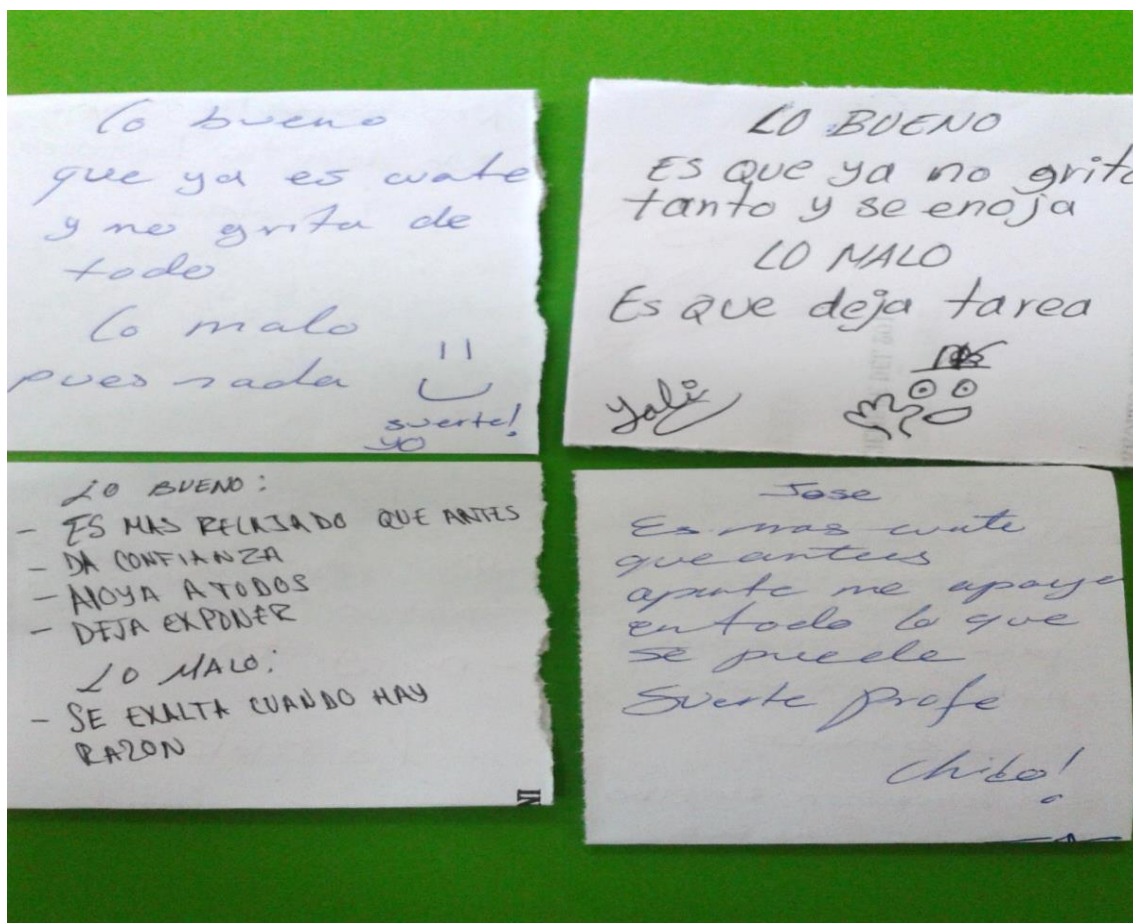 Lo bueno
que ya es cuate
y no grita de
todo
Lo malo
pues nada
suerte!
yo
LO BUENO
ES QUE ya no grita
tanto y se enoja
LO MALO
Es que deja tarea
Yali
LO BUENO:
- ES MAS RELAJADO QUE ANTES
- DA CONFIANZA
- APOYA A TODOS
- DEJA EXPONER
LO MALO:
- SE EXALTA CUANDO HAY
RAZON
Jose
Es mas cuate
que antes
aparte me apoya
en todo lo que
se puede
Suerte profe